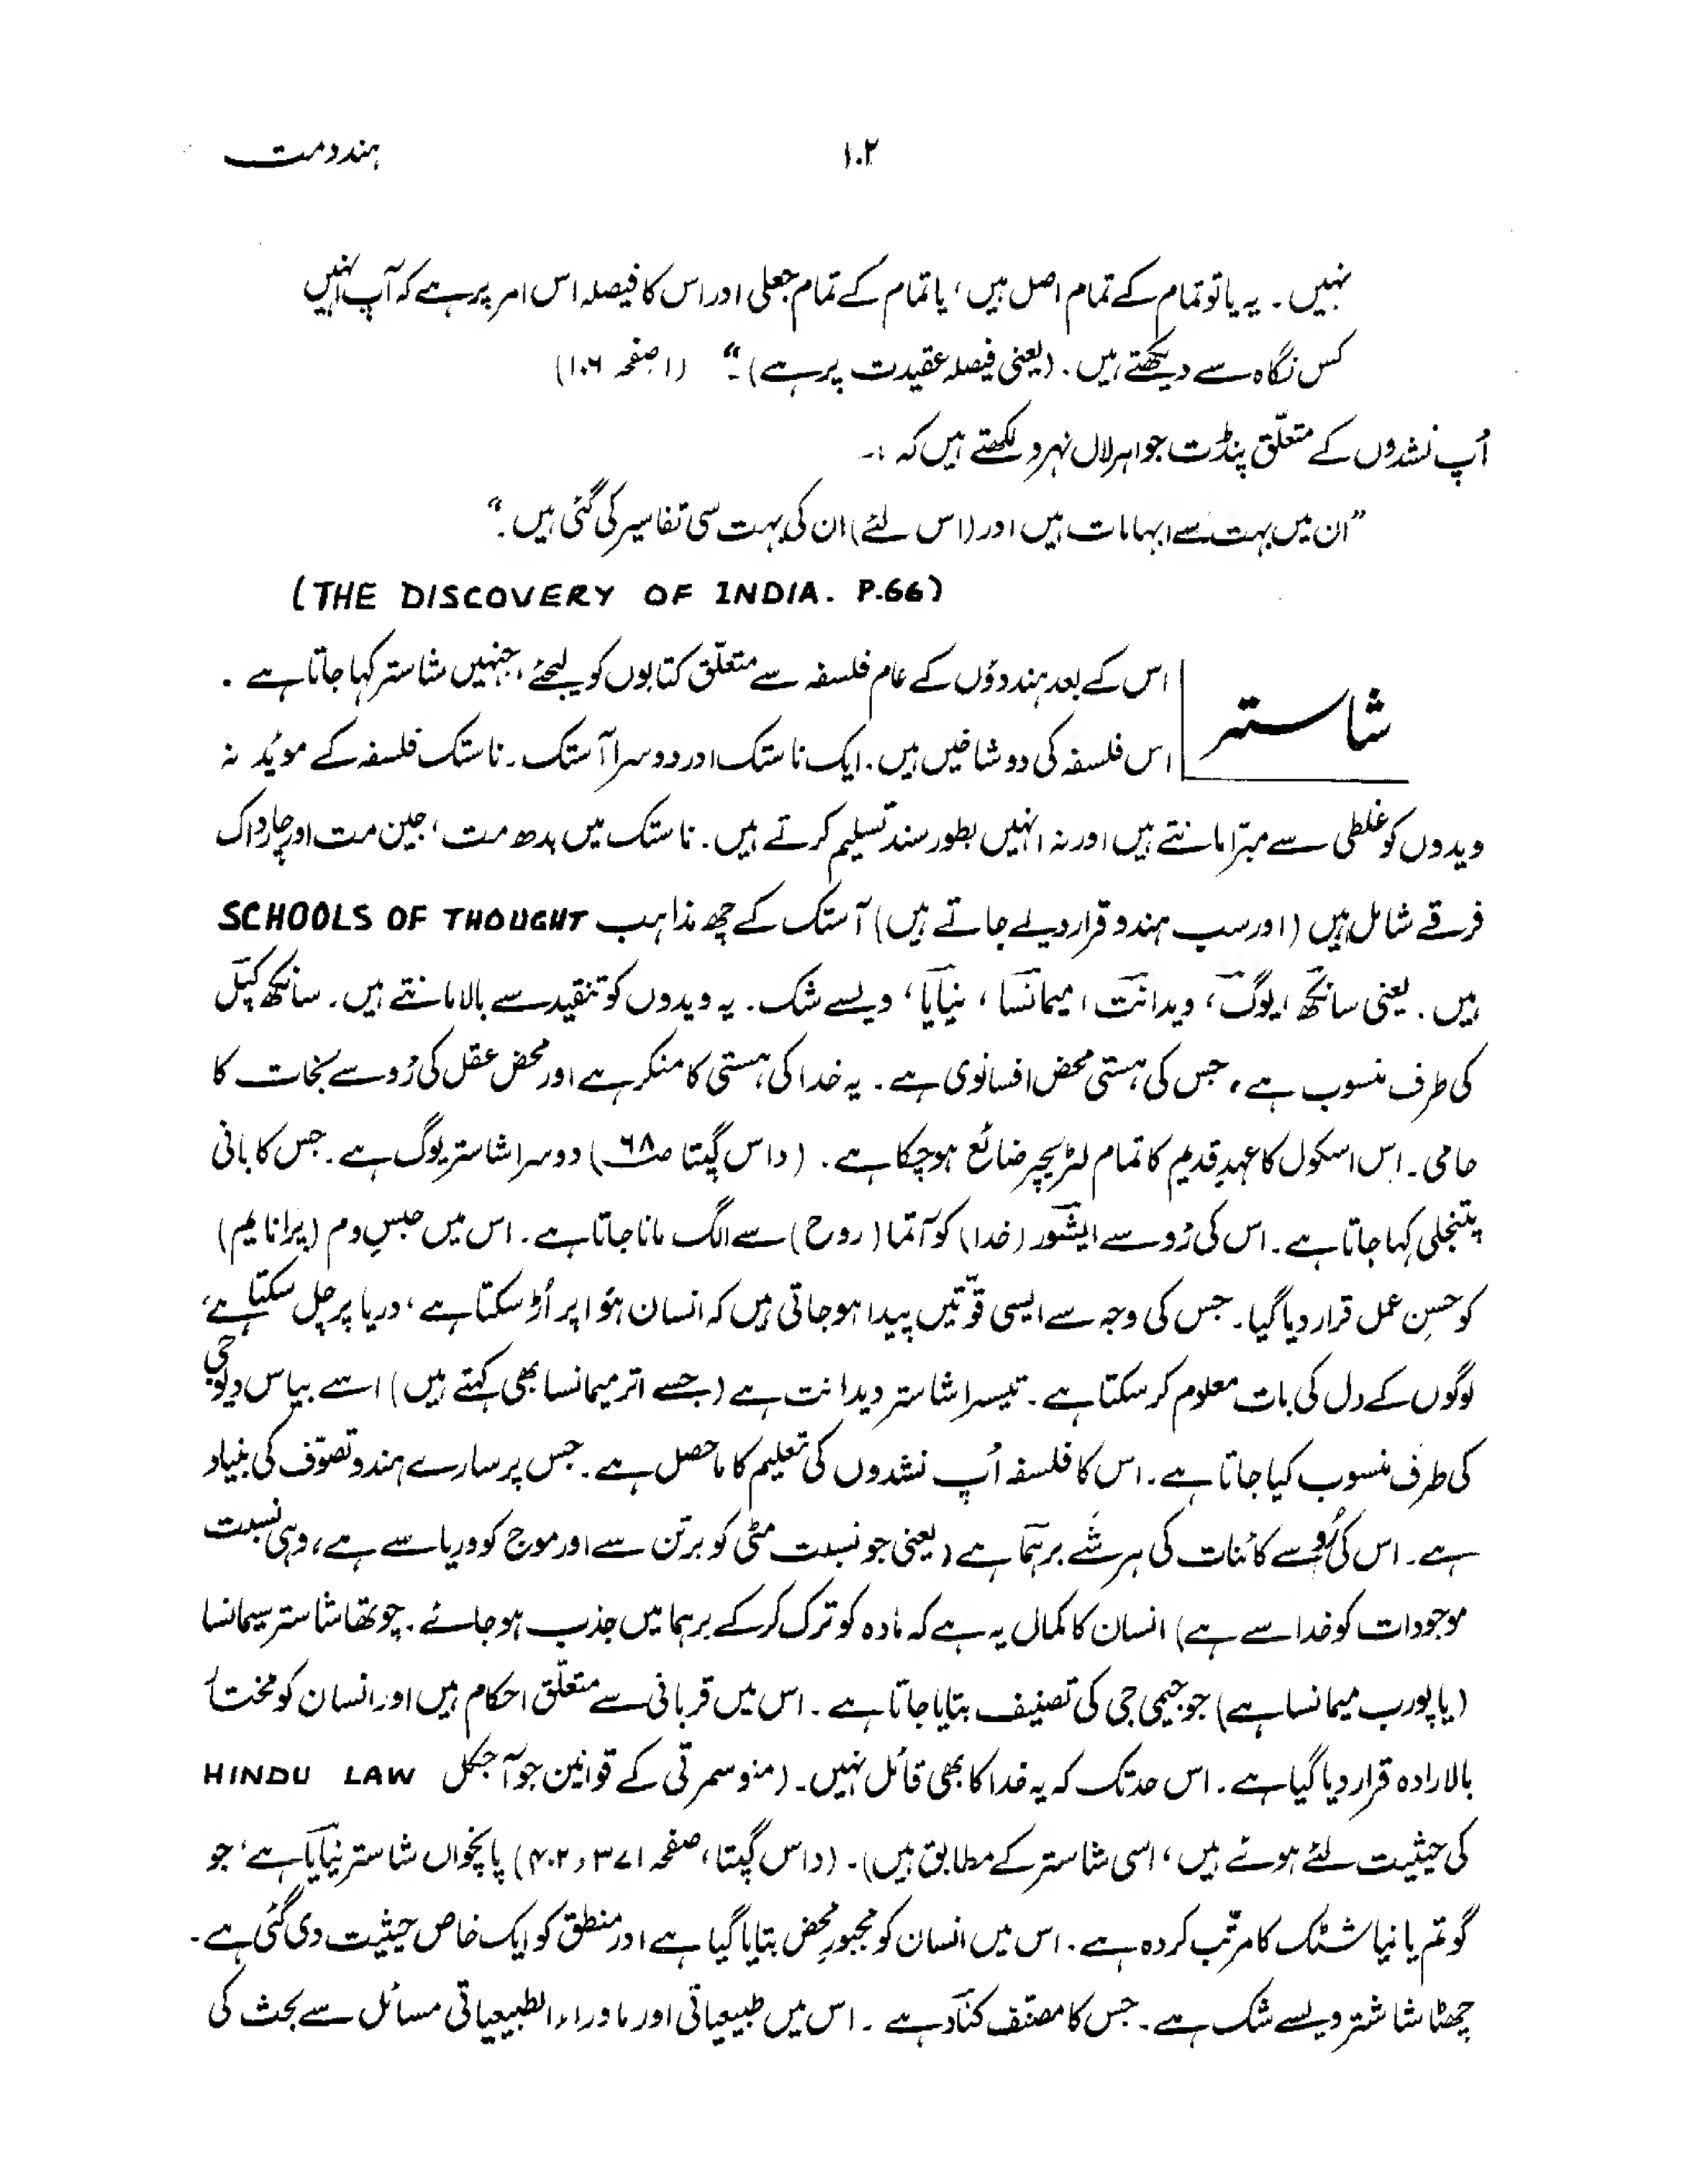 ہندومت
۱۰۲
نہیں۔ یہ یا تو تمام کے تمام اصل ہیں، یا تمام کے تمام جعلی اور اس کا فیصلہ اس امر پر ہے کہ آپ انہیں
کس نگاہ سے دیکھتے ہیں۔ (یعنی فیصلہ عقیدت پر ہے)۔“ (صفحہ ۱۰۶)
اُپ نشدوں کے متعلّق پنڈت جواہر لال نہرو لکھتے ہیں کہ :۔
”ان میں بہت سے ابہامات ہیں اور (اس لئے) ان کی بہت سی تفاسیر کی گئی ہیں۔“
(THE DISCOVERY OF INDIA. P.66)
شاستر
اس کے بعد ہندوؤں کے عام فلسفہ سے متعلّق کتابوں کو لیجئے، جنہیں شاستر کہا جاتا ہے۔
اس فلسفہ کی دو شاخیں ہیں۔ ایک ناستک اور دوسرا آستک۔ ناستک فلسفہ کے مویّد نہ
ویدوں کو غلطی سے مبرّا مانتے ہیں اور نہ انہیں بطور سند تسلیم کرتے ہیں۔ ناستک میں بدھ مت، جین مت اور چارواک
فرقے شامل ہیں (اور سب ہندو قرار دیئے جاتے ہیں) آستک کے چھ مذاہب SCHOOLS OF THOUGHT
ہیں۔ یعنی سانکھ، یوگ، ویدانت، میمانسا، نیایا، ویسے شک۔ یہ ویدوں کو تنقید سے بالا مانتے ہیں۔ سانکھ کپل
کی طرف منسوب ہے، جس کی ہستی محض افسانوی ہے۔ یہ خدا کی ہستی کا منکر ہے اور محض عقل کی رُو سے نجات کا
حامی۔ اِس اسکول کا عہدِ قدیم کا تمام لٹریچر ضائع ہو چکا ہے۔ (داس گپتا صفحہ ۶۸) دوسرا شاستر یوگ ہے۔ جس کا بانی
پتنجلی کہا جاتا ہے۔ اس کی رُو سے ایشور (خدا) کو آتما (روح) سے الگ مانا جاتا ہے۔ اس میں حبسِ دم (پرانایم)
کو حسنِ عمل قرار دیا گیا۔ جس کی وجہ سے ایسی قوّتیں پیدا ہو جاتی ہیں کہ انسان ہَوا پر اُڑ سکتا ہے، دریا پر چل سکتا ہے،
لوگوں کے دل کی بات معلوم کر سکتا ہے۔ تیسرا شاستر ویدانت ہے (جسے اتر میمانسا بھی کہتے ہیں) اسے بیاس دیوجی
کی طرف منسوب کیا جاتا ہے۔ اس کا فلسفہ اُپ نشدوں کی تعلیم کا ماحصل ہے۔ جس پر سارے ہندو تصوّف کی بنیاد
ہے۔ اس کی رُو سے کائنات کی ہر شَے برہما ہے (یعنی جو نسبت مٹی کو برتن سے اور موج کو دریا سے ہے، وہی نسبت
موجودات کو خدا سے ہے) انسان کا کمال یہ ہے کہ مادہ کو ترک کر کے برہما میں جذب ہو جائے۔ چوتھا شاستر میمانسا
(یا پورب میمانسا ہے) جو جیمی جی کی تصنیف بتایا جاتا ہے۔ اس میں قربانی سے متعلّق احکام ہیں اور انسان کو مختار
بالارادہ قرار دیا گیا ہے۔ اس حد تک کہ یہ خدا کا بھی قائل نہیں۔ (منو سمرتی کے قوانین جو آجکل HINDU LAW
کی حیثیت لئے ہوئے ہیں، اسی شاستر کے مطابق ہیں)۔ (داس گپتا، صفحہ ۳۷۱، ۴۰۲) پانچواں شاستر نیایا ہے، جو
گوتم یا نیا شٹک کا مرتّب کردہ ہے۔ اس میں انسان کو مجبورِ محض بتایا گیا ہے اور منطق کو ایک خاص حیثیت دی گئی ہے۔
چھٹا شاشتر ویسے شک ہے۔ جس کا مصنّف کناد ہے۔ اس میں طبیعیاتی اور ماوراء الطبیعیاتی مسائل سے بحث کی